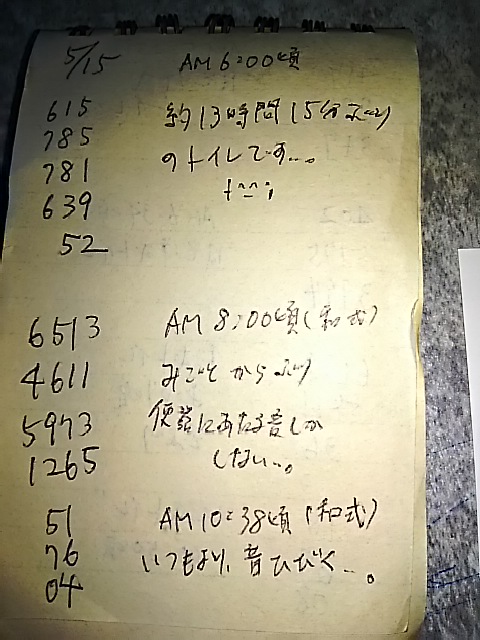 5/15 AM6:00頃
615 約13時間15分ぶり
785 のトイレです…。
781 t^^;
639
52
6513 AM8:00頃(和式)
4611 みごとからぶり
5973 便器にあたる音しか
1265 しない…。
51 AM10:38頃(和式)
76 いつもより、音ひびく…。
04